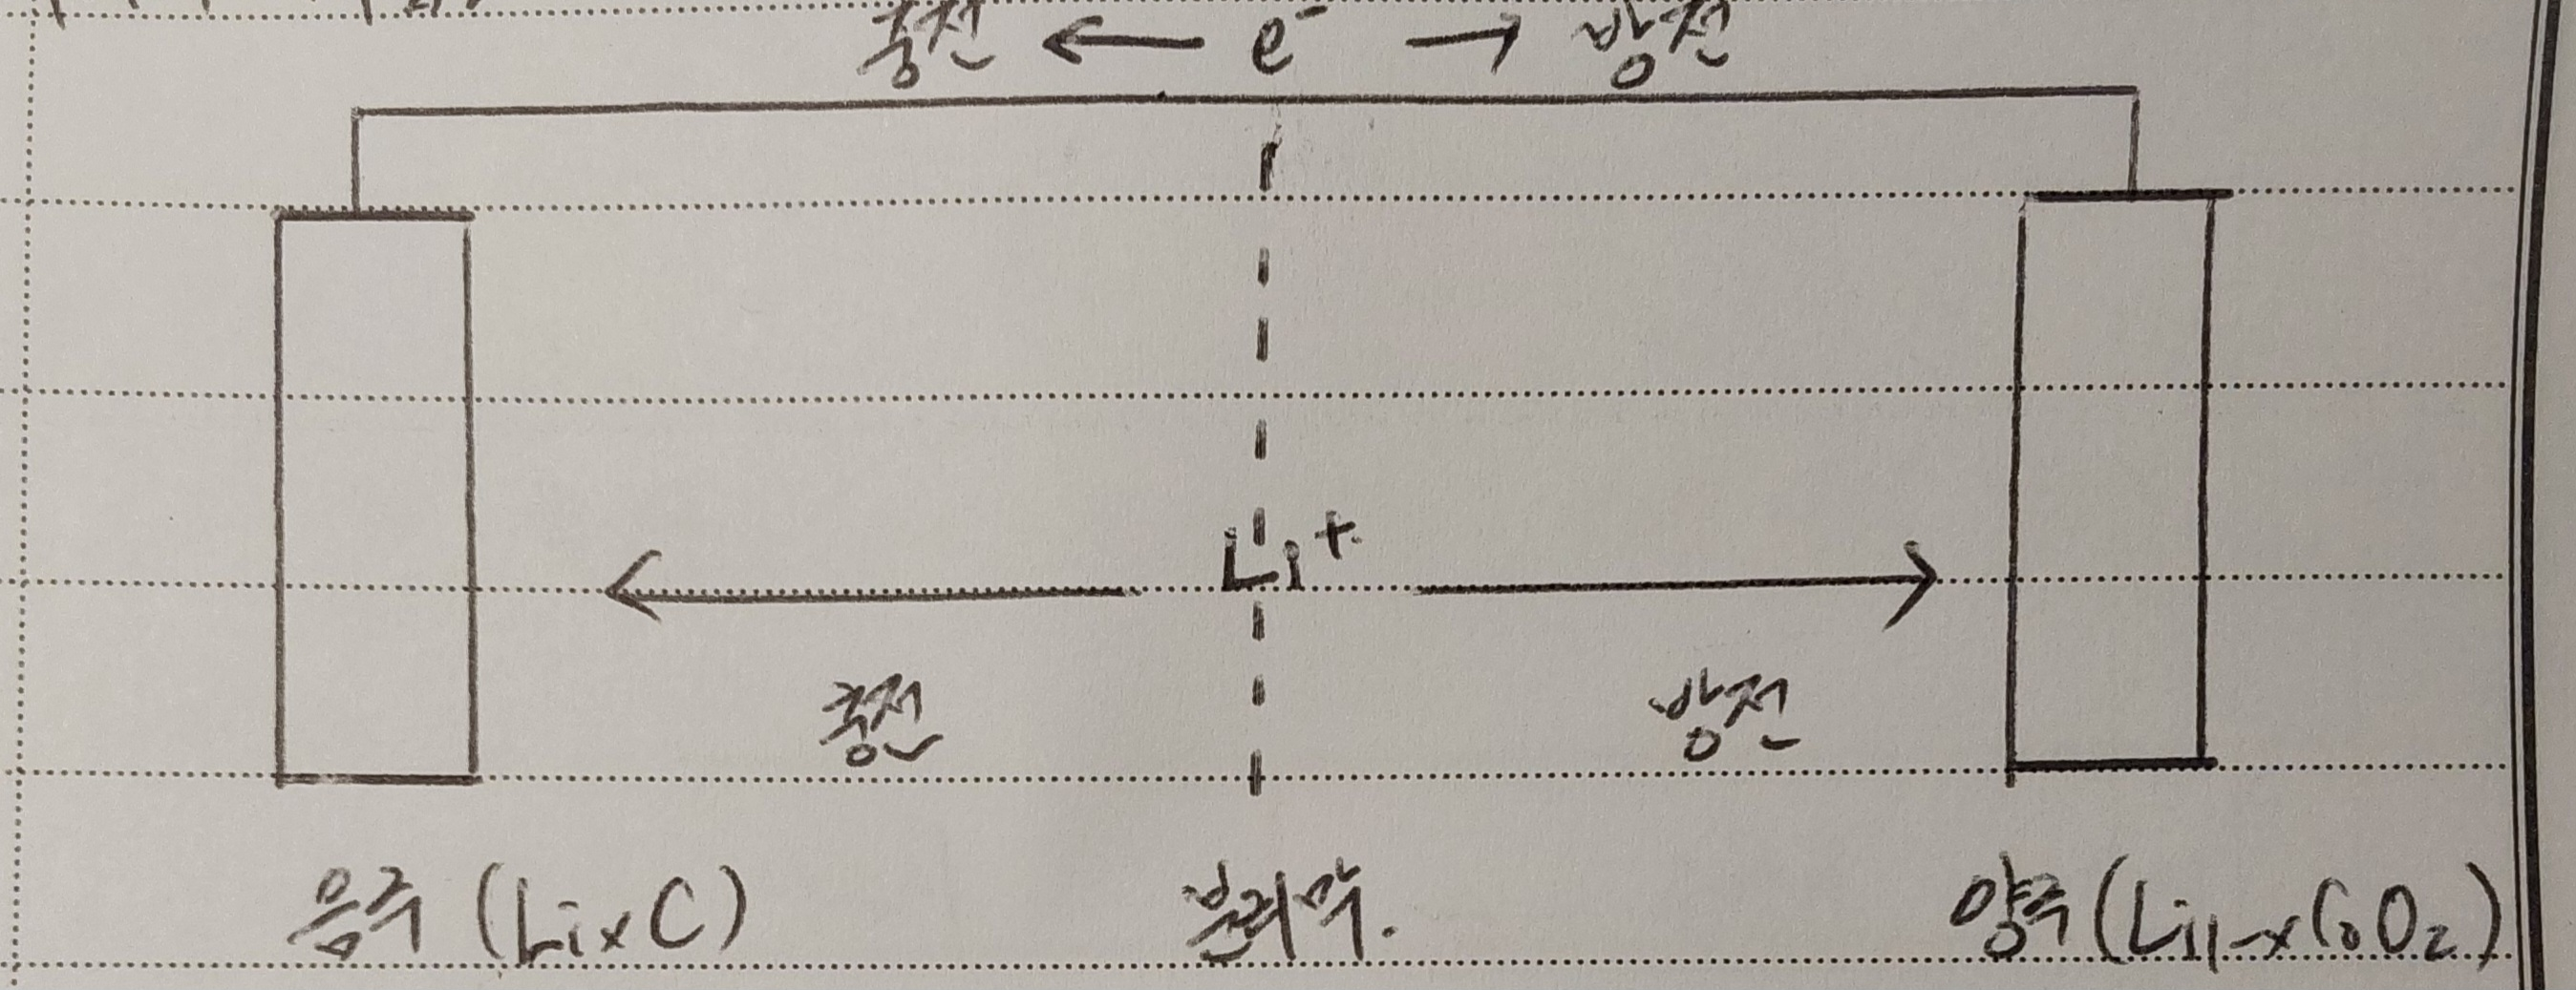 충전 ← e⁻ → 방전
Li⁺
충전 방전
음극 (LixC) 분리막. 양극 (Li1-xCoO2)